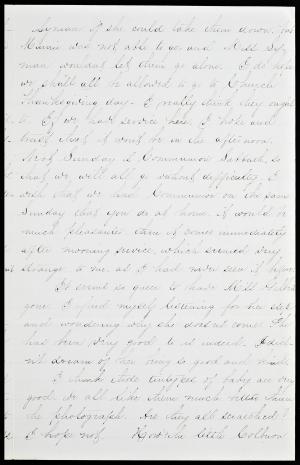 Lyman if she could take them down, but
Minnie was not able to go and Miss Ly-
man wouldn't let them go alone. I do hope
we shall all be allowed to go to Church
Thanksgiving day - I really think they ought
to. If we have service here I hope and
trust that it won't be in the afternoon.
Next Sunday is Communion Sabbath, so
that we will all go without difficulty. I
wish that we had Communion on the same
Sunday that you do at home. It would be
much pleasanter than it comes immediately
after morning service, which seemed very
strange to me, as I had never seen it before.
It seems so queer to have Miss
gone. I find myself listening for her step
and wondering why she doesn't come. She
has been very good to us indeed. I did-
n't dream of her being so good and kind.
I think those tintypes of baby are very
good. We all like them much better than
the photograph. Are they all scratched?
I hope not. How the little